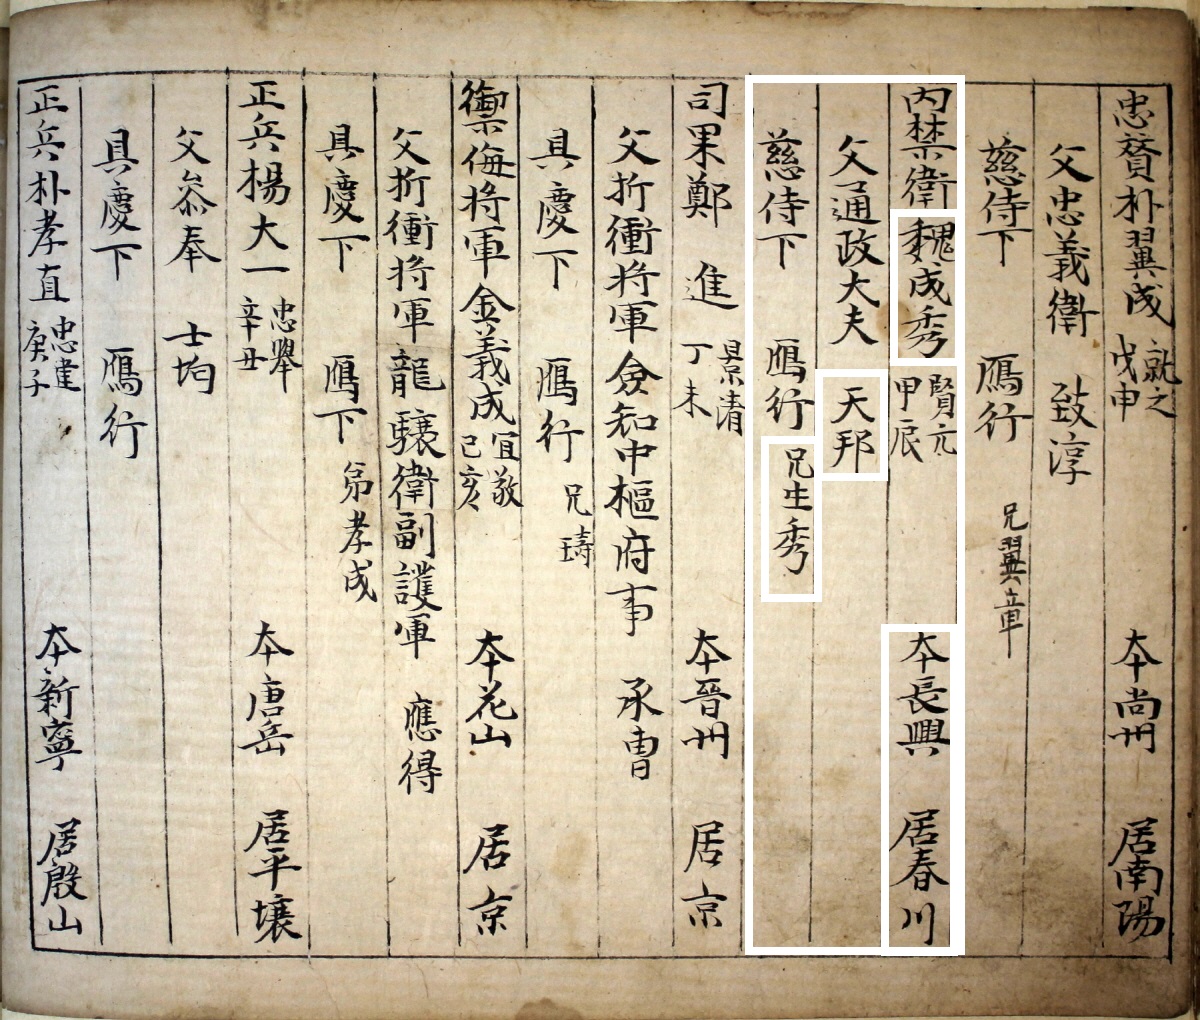 忠贊朴翼成 就之 戊申 本尚州 居南陽
父忠義衛 致淳
慈侍下 鴈行 兄翼章
內禁衛魏成秀 賢元 甲辰 本長興 居春川
父通政大夫 天邦
慈侍下 鴈行 兄生秀
司果鄭進 景清 丁未 本晉州 居京
父折衝將軍僉知中樞府事 承曺
具慶下 鴈行 兄璹
禦侮將軍金義成 宜敬 己亥 本花山 居京
父折衝將軍龍驤衛副護軍 應得
具慶下 鴈下 弟孝成
正兵楊大一 忠擧 辛丑 本唐岳 居平壤
父叅奉 士均
具慶下 鴈行
正兵朴孝直 忠建 庚子 本新寧 居殷山